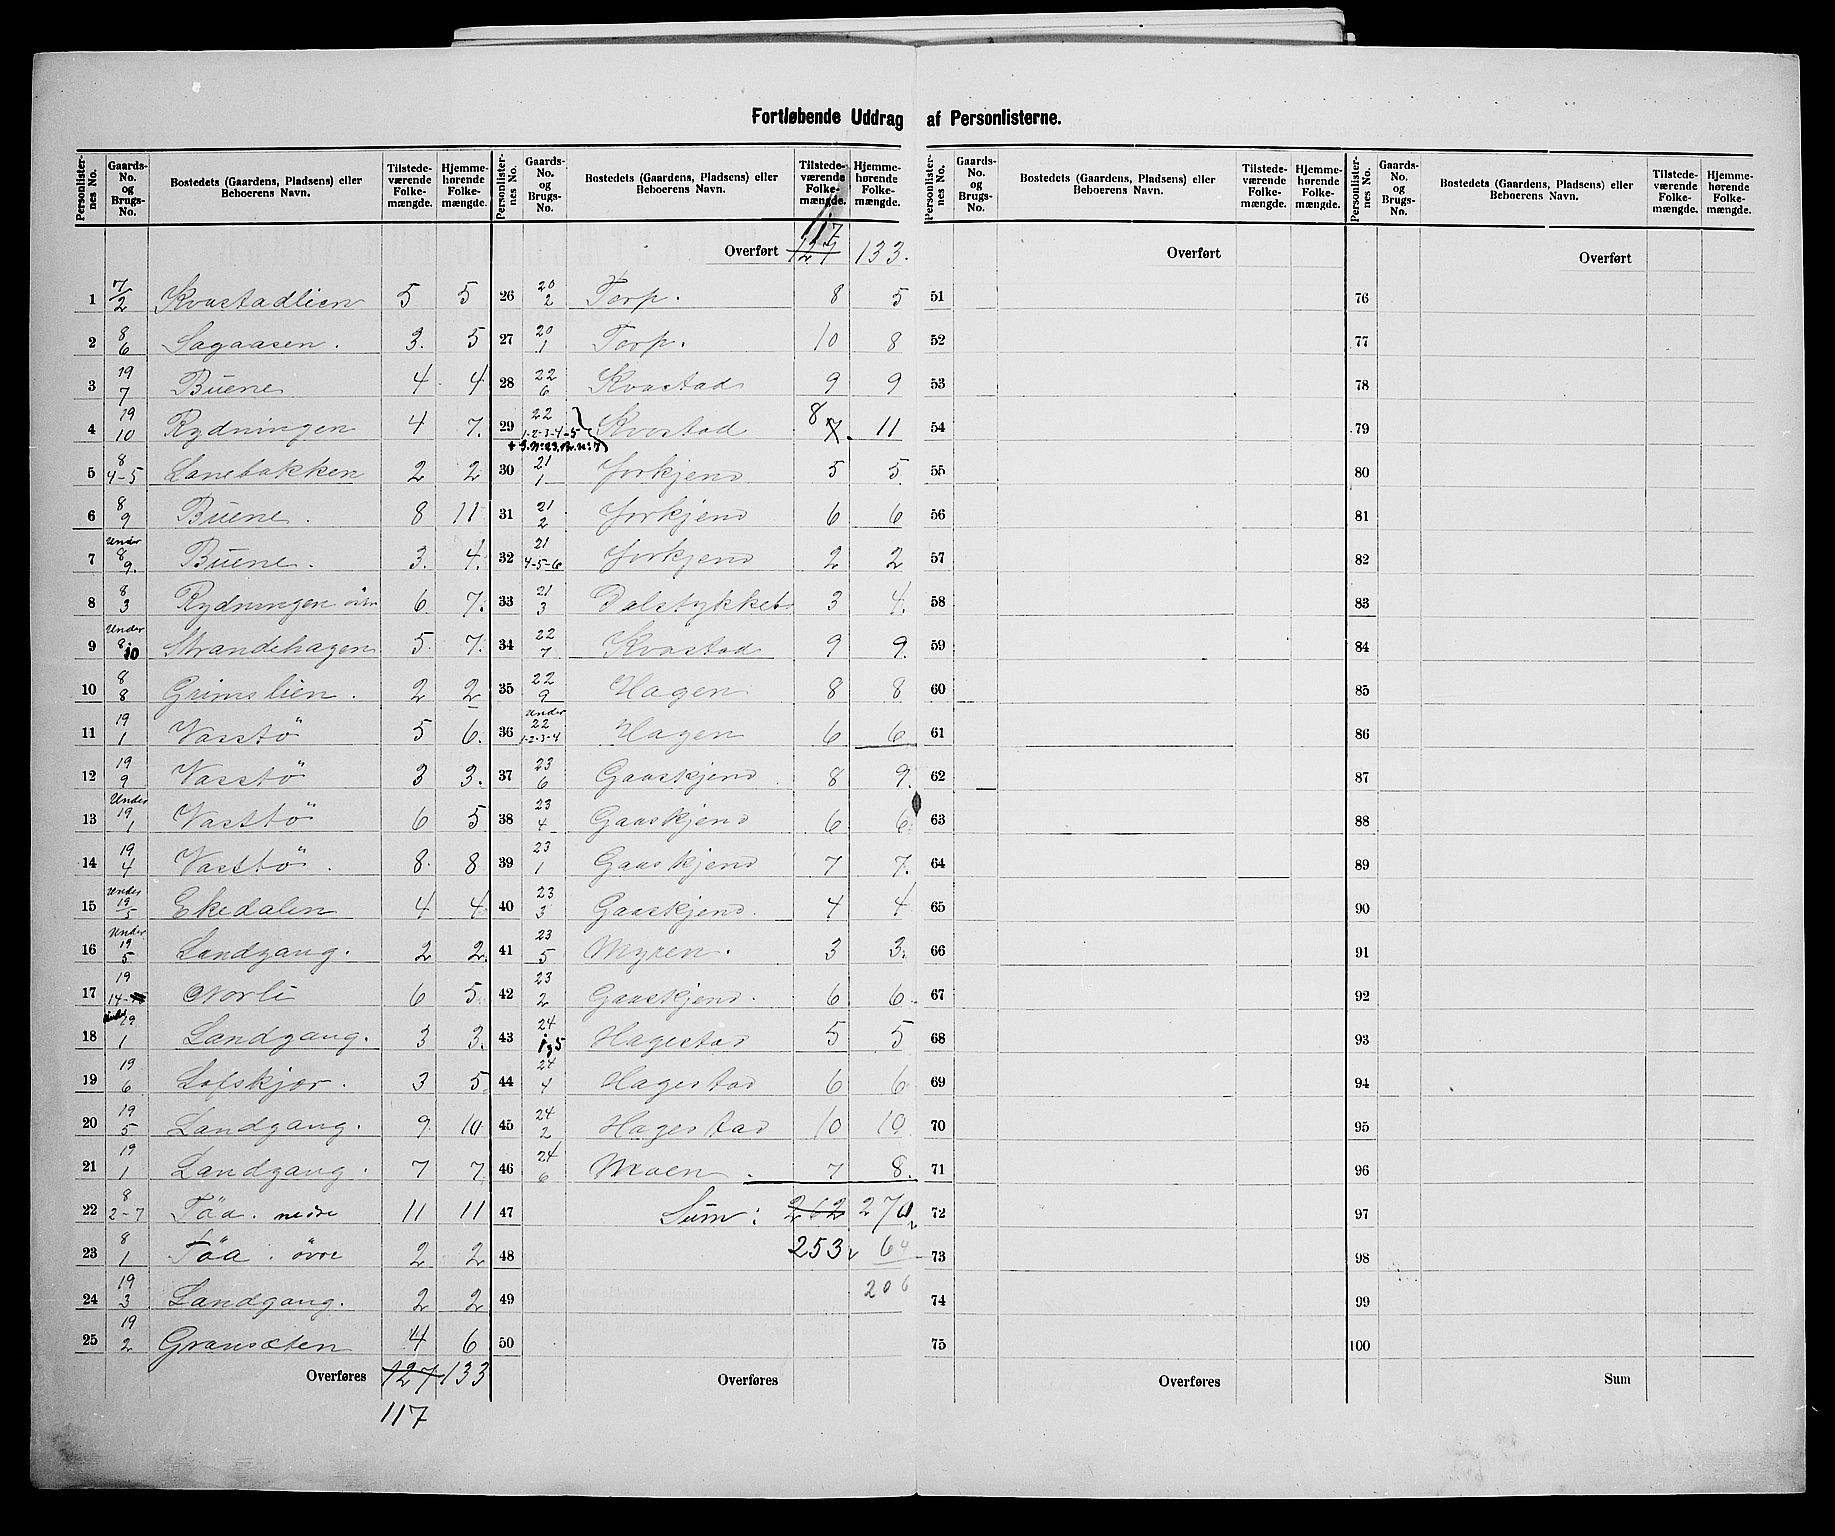 Fortløbende Uddrag af Personlisterne.
Personlisternes No. | Gaards-No. og Brugs-No. | Bostedets (Gaardens, Pladsens) eller Beboerens Navn. | Tilstedeværende Folkemængde. | Hjemmehørende Folkemængde.
1 7/2 Kvastadlien 5 5
2 8/6 Sagaasen. 3. 5
3 19/7 Buene 4 4
4 19/10 Rydningen 4 7.
5 8/4-5 Lanebakken 2 2
6 8/9 Buene. 8 11
7 Under 8/9. Buene. 3. 4.
8 8/3 Rydningen 6 7.
9 Under 8/10 Strandehagen 5. 7.
10 8/8 Grimslien. 2 2
11 19/1 Vasstö 5 6.
12 19/9 Vasstö 3 3.
13 Under 19/1 Vasstö 6 5
14 19/4 Vasstö. 8. 8
15 Under 19/5 Ekedalen 4 4
16 Under 19/5 Landgang. 2 2.
17 19/14 Norli 6 5
18 Under 19/1 Landgang. 3 3.
19 19/6 Lofskjær. 3 5
20 19/5 Landgang. 9 10
21 19/1 Landgang. 7 7
22 8/2-7 Töa. nedre 11 11
23 8/1 Töa. övre 2 2
24 19/3 Landgang. 2 2
25 19/2 Gransæten 4 6
Overføres 127 133
117
Personlisternes No. | Gaards-No. og Brugs-No. | Bostedets (Gaardens, Pladsens) eller Beboerens Navn. | Tilstedeværende Folkemængde. | Hjemmehørende Folkemængde.
117
Overført 127 133.
26 20/2 Torp. 8 5
27 20/1 Torp. 10 8
28 22/6 Kvastad 9 9
29 22/1-2-3-4-5 Kvastad 8 7. 11
30 21/1 Forkjend 5 5.
31 21/2 Forkjend 6 6
32 21/4-5-6 Forkjend 2 2
33 21/3 Dalstykket 3 4.
34 22/7 Kvastad 9 9.
35 22/9 Hagen 8 8
36 Under 22/1-2-3-4 Hagen 6 6
37 23/6 Gaaskjend 8 9.
38 23/4 Gaaskjend 6 6.
39 23/1 Gaaskjend 7 7.
40 23/3 Gaaskjend. 4 4
41 23/5 Myren. 3 3.
42 23/2 Gaaskjend. 6 6.
43 24/1,5 Hagestad 5 5
44 24/4 Hagestad 6 6
45 24/2 Hagestad 10 10
46 24/6 Moen. 7 8.
47 Sum: 262 270
48 253 64
49 206
50
Overføres
Personlisternes No. | Gaards-No. og Brugs-No. | Bostedets (Gaardens, Pladsens) eller Beboerens Navn. | Tilstedeværende Folkemængde. | Hjemmehørende Folkemængde.
Overført
51
52
53
54
55
56
57
58
59
60
61
62
63
64
65
66
67
68
69
70
71
72
73
74
75
Overføres
Personlisternes No. | Gaards-No. og Brugs-No. | Bostedets (Gaardens, Pladsens) eller Beboerens Navn. | Tilstedeværende Folkemængde. | Hjemmehørende Folkemængde.
Overført
76
77
78
79
80
81
82
83
84
85
86
87
88
89
90
91
92
93
94
95
96
97
98
99
100
Sum